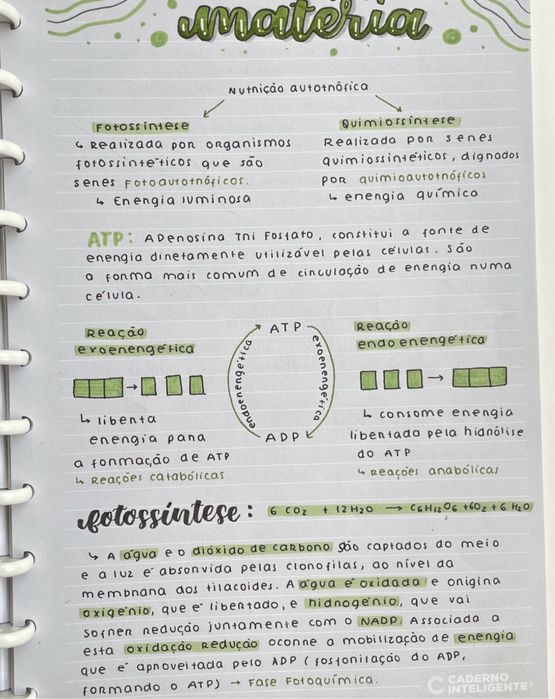 matéria
Nutrição autotrófica
Fotossíntese
Quimiossíntese
↳ Realizada por organismos
fotossintéticos que são
seres Fotoautotróficos.
↳ Energia luminosa
Realizada por seres
quimiossintéticos, dignados
por quimioautotróficos
↳ energia química
ATP: Adenosina Tri Fosfato, constitui a fonte de
energia diretamente utilizável pelas células. São
a forma mais comum de circulação de energia numa
célula.
Reação
exoenergética
→
↳ liberta
energia para
a formação de ATP
↳ Reações catabólicas
ATP
endoenergética
exoenergética
ADP
Reação
endoenergética
→
↳ consome energia
libertada pela hidrólise
do ATP
↳ Reações anabólicas
fotossíntese: 6 CO2 + 12 H2O → C6H12O6 + 6O2 + 6 H2O
↳ A água e o dióxido de carbono são captados do meio
e a luz é absorvida pelas clorofilas, ao nível da
membrana dos tilacoides. A água é oxidada e origina
oxigénio, que é libertado, e hidrogénio, que vai
sofrer redução juntamente com o NADP. Associada a
esta oxidação redução ocorre a mobilização de energia
que é aproveitada pelo ADP (fosforilação do ADP,
formando o ATP) → Fase Fotoquímica.
CADERNO
INTELIGENTE®